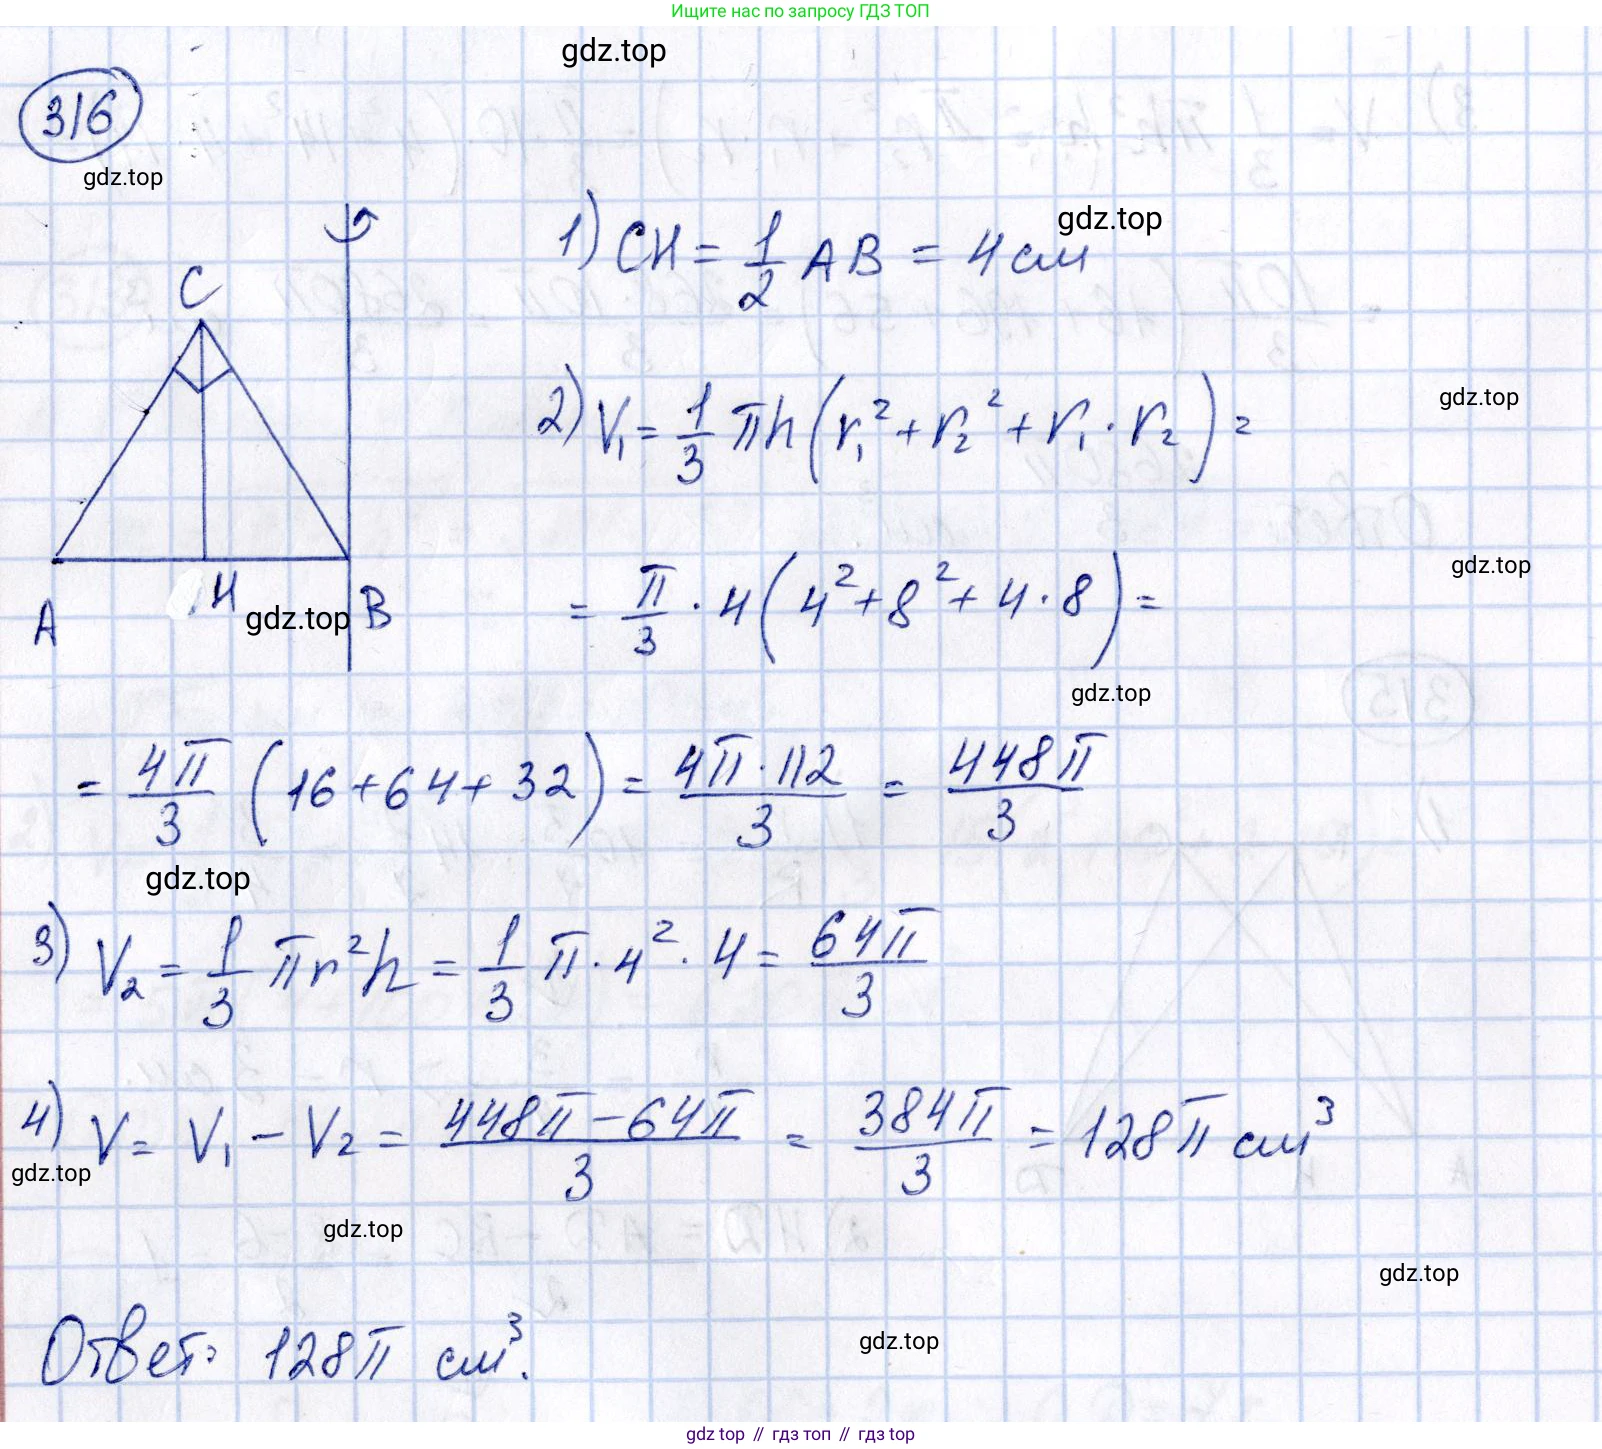 Ищите нас по запросу ГДЗ ТОП
gdz.top
316
gdz.top
1) CH = 1/2 AB = 4 см
gdz.top
C
2) V₁ = 1/3 πh(r₁² + r₂² + r₁ · r₂) =
gdz.top
= π/3 · 4(4² + 8² + 4 · 8) =
gdz.top
A H B
gdz.top
gdz.top
= 4π/3 (16 + 64 + 32) = 4π · 112/3 = 448π/3
gdz.top
3) V₂ = 1/3 πr²h = 1/3 π · 4² · 4 = 64π/3
4) V = V₁ − V₂ = 448π − 64π/3 = 384π/3 = 128π см³
gdz.top
gdz.top
gdz.top
Ответ: 128π см³.
gdz.top
gdz top // гдз топ // гдз top